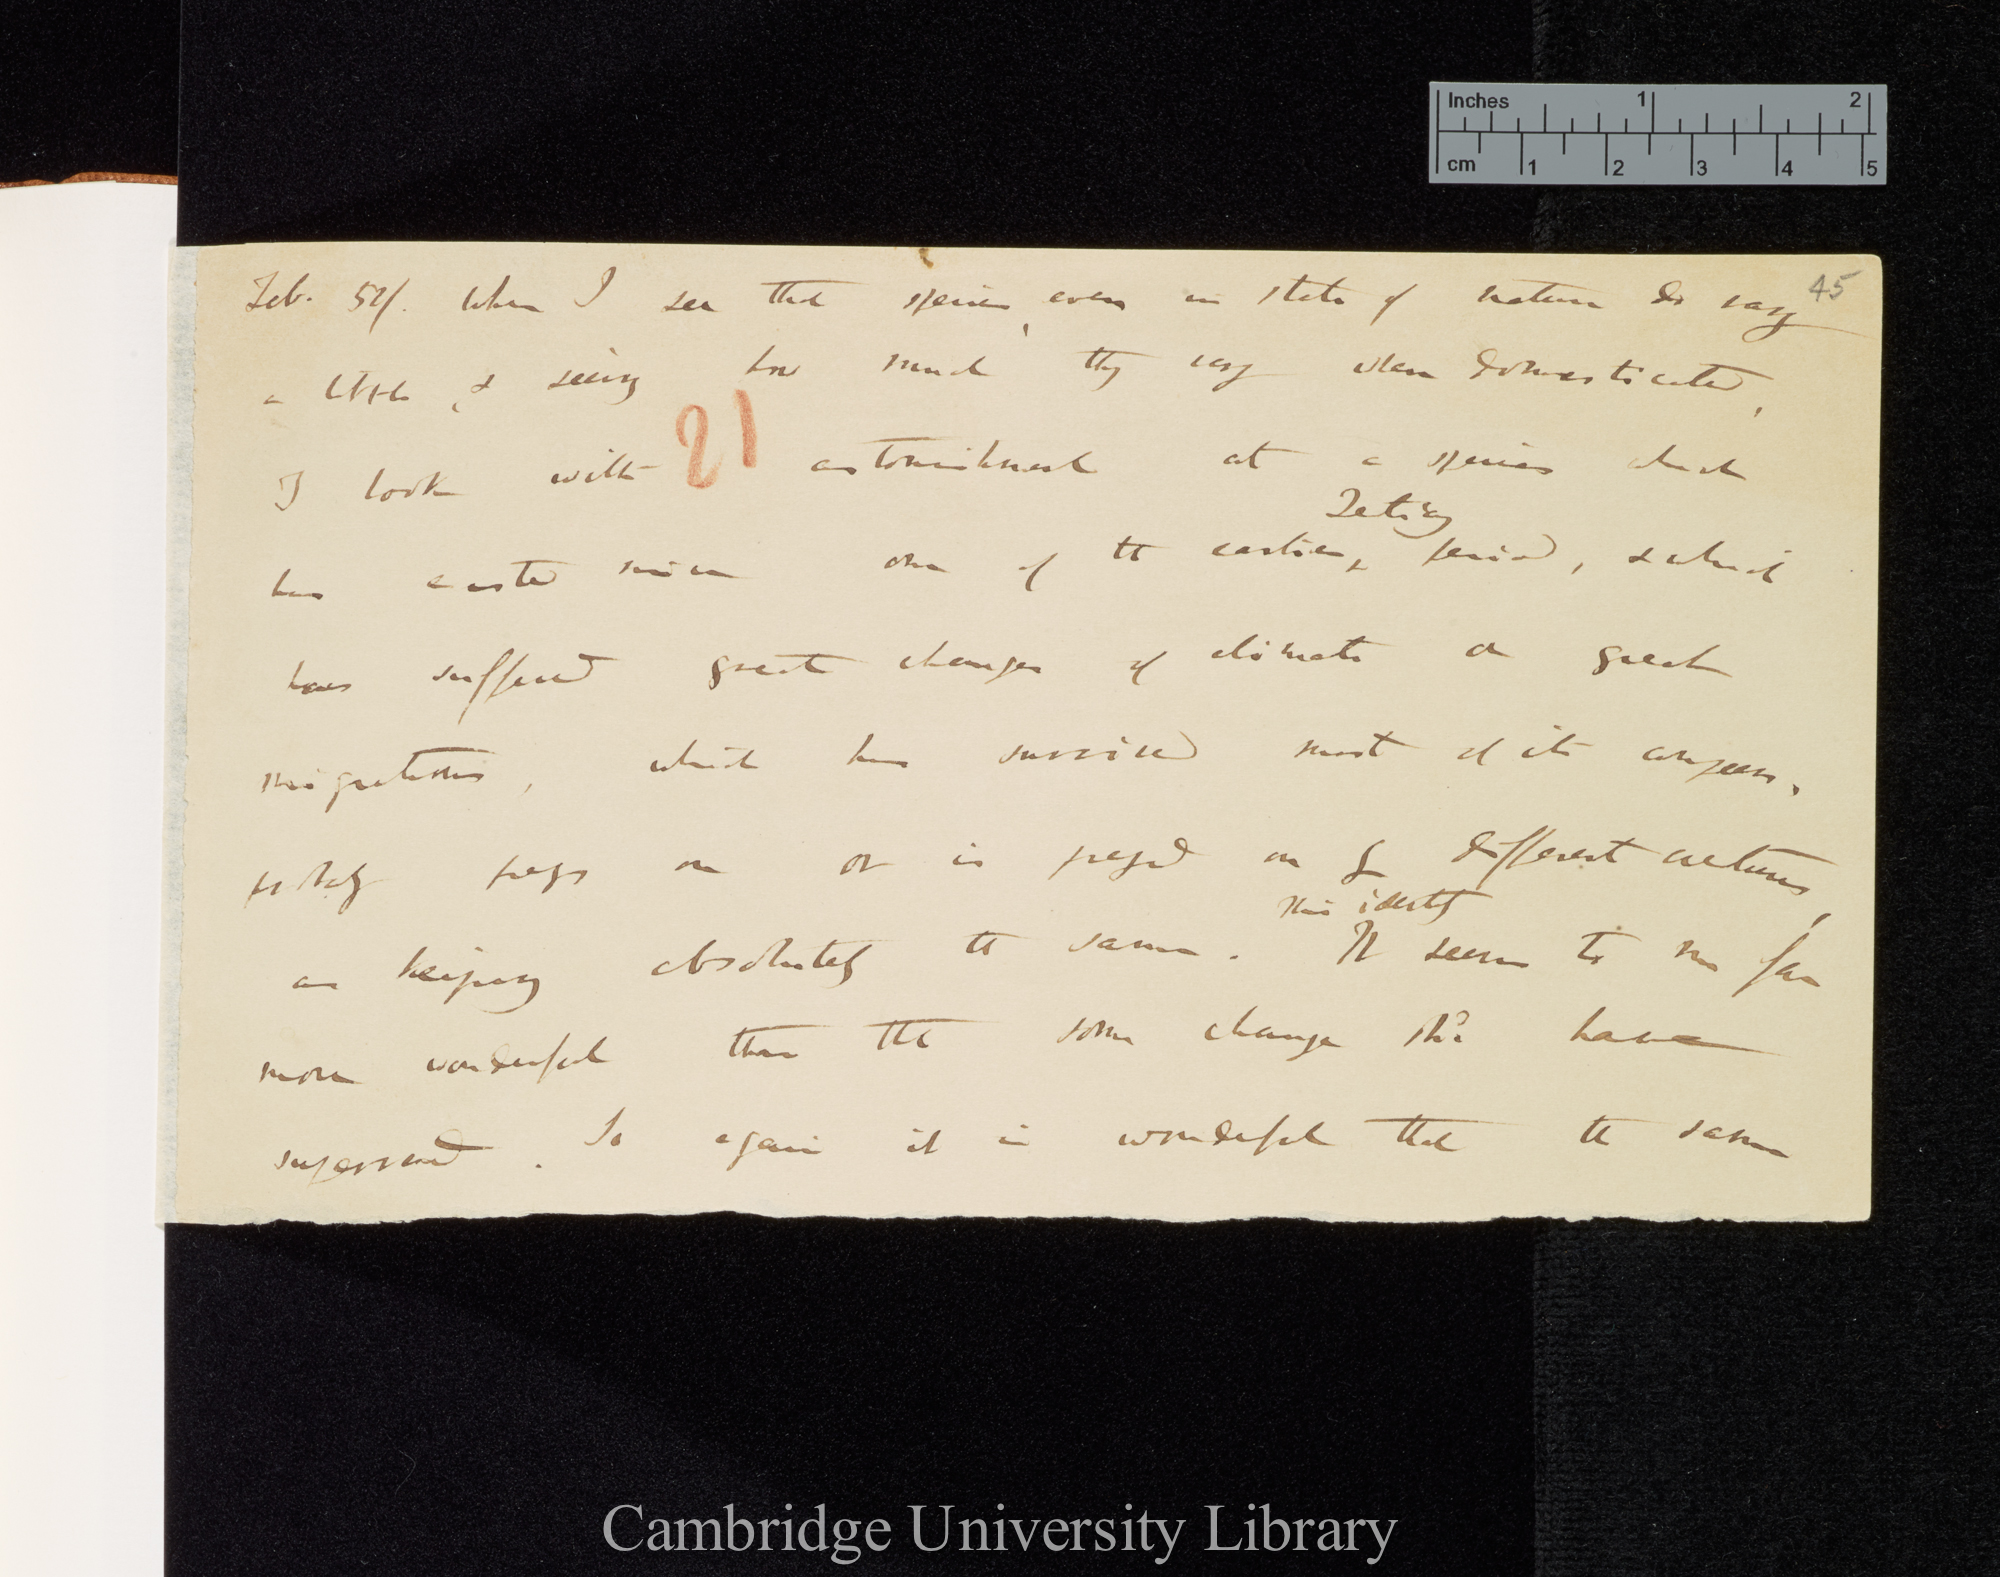 Inches 1 2
cm 1 2 3 4 5
45
Feb. 52/. When I see that species, even in state of nature do vary
a little, & seeing how much they vary when domesticated,
21
I look with astonishment at a species which
Tertiary
has existed since one of the earlier period, & which
has suffered great changes of climate or great
migrations, which has survived most of its compeers,
probably preys on or is preyed on by different creatures,
this identity
as keeping absolutely the same. It seems to me far
more wonderful than that some change shd have
supervened. So again it is wonderful that the same
Cambridge University Library